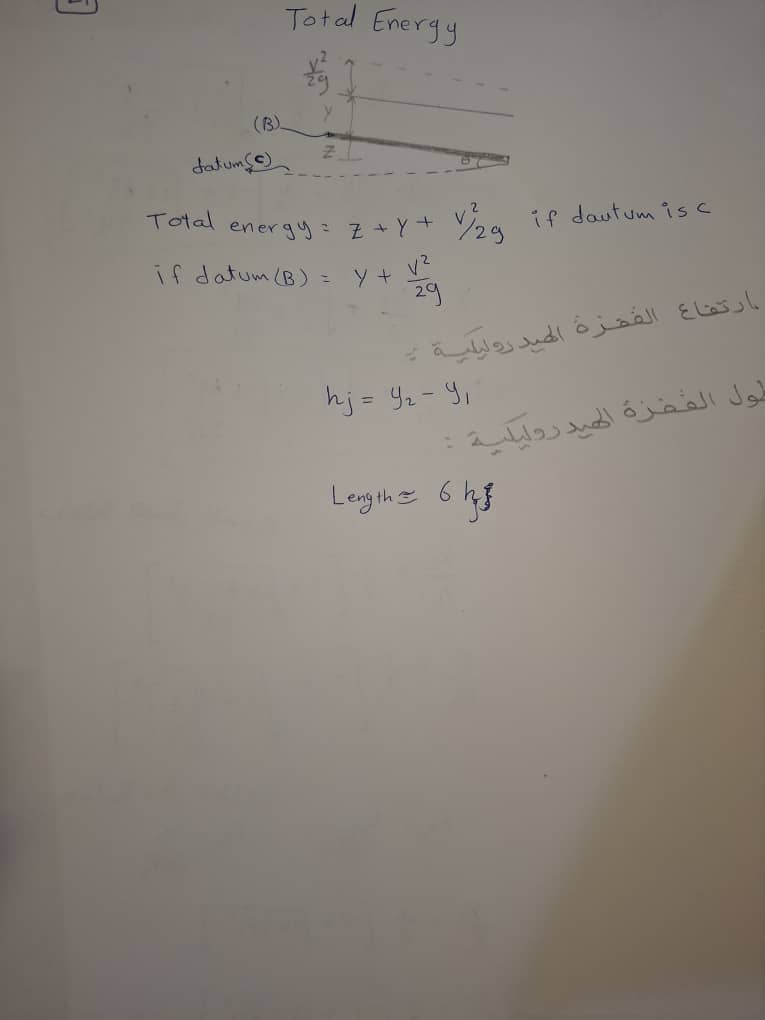 Total Energy
V²/2g
Y
(B)
Z
datum(C)
θ
Total energy = Z + Y + V²/2g if dautum is c
if datum (B) = Y + V²/2g
ارتفاع القفزة الهيدروليكية :
hj = y₂ - y₁
طول القفزة الهيدروليكية :
Length ≈ 6 hj